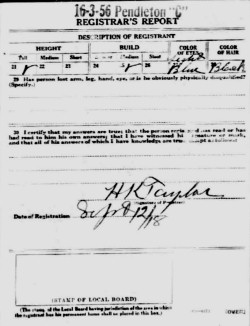 16-3-56 Pendleton "C"
REGISTRAR'S REPORT
DESCRIPTION OF REGISTRANT
HEIGHT BUILD COLOR OF EYES COLOR OF HAIR
Tall Medium Short Slender Medium Stout
21 22 23 24 25 26 27 Light Blue 28 Black
29 Has person lost arm, leg, hand, eye, or is he obviously physically disqualified?
(Specify.)
30 I certify that my answers are true; that the person registered has read or has
had read to him his own answers; that I have witnessed his signature or mark,
and that all of his answers of which I have knowledge are true, except as follows:
H K Taylor
Date of Registration Sept 12/18
(STAMP OF LOCAL BOARD)
(The stamp of the Local Board having jurisdiction of the area in which
the registrant has his permanent home shall be placed in this box.)